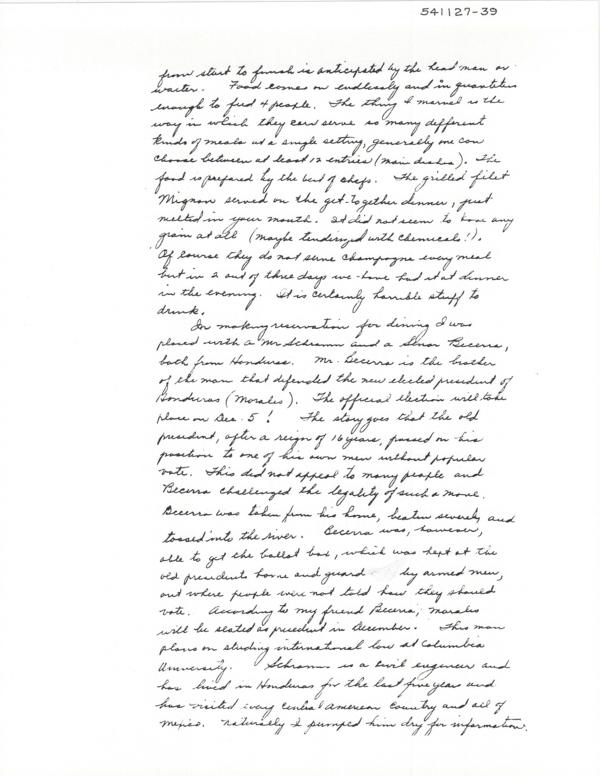 541127-39
from start to finish is anticipated by the head man or
waiter. Food comes on endlessly and in quantities
enough to feed 4 people. The thing I marvel is the
way in which they can serve so many different
kinds of meals at a single setting, generally one can
choose between at least 12 entries (main dishes). The
food is prepared by the best of chefs. The grilled filet
Mignon served on the get-together dinner, just
melted in your mouth. It did not seem to have any
grain at all (maybe tenderized with chemicals!).
Of course they do not serve champagne every meal
but in 2 out of three days we have had it at dinner
in the evening. It is certainly horrible stuff to
drink.
In making reservation for dining I was
placed with a Mr Schramm and a Senor Becerra,
both from Honduras. Mr. Becerra is the brother
of the man that defended the new elected president of
Honduras (Morales). The official election will take
place on Dec. 5! The story goes that the old
president, after a reign of 16 years, passed on his
position to one of his own men without popular
vote. This did not appeal to many people and
Becerra challenged the legality of such a move.
Becerra was taken from his home, beaten severely and
tossed into the river. Becerra was, however,
able to get the ballot box, which was kept at the
old presidents home and guard by armed men,
out where people were not told how they should
vote. According to my friend Becerra, Morales
will be seated as president in December. This man
plans on studing international law at Columbia
University. Schramm is a civil engineer and
has lived in Honduras for the last five year and
has visited every Central American country and all of
Mexico. Naturally I pumped him dry for information.